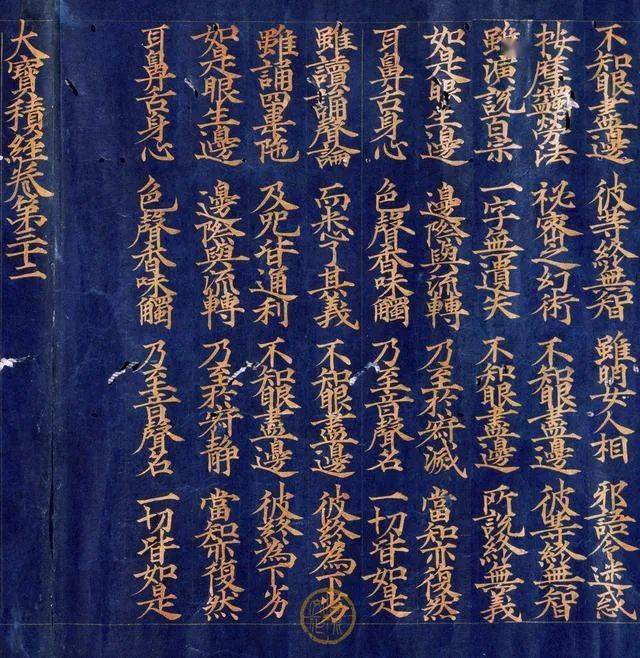 不知眼盡邊 彼等終無智 雖閑女人相 邪語令迷惑
按摩蠱法 祕密之幻術 不知眼盡邊 彼等終無智
雖演說百宗 一字無遺失 不知眼盡邊 所說終無義
如是眼生邊 邊際與流轉 乃至於寂滅 當知亦復然
耳鼻舌身心 色聲香味觸 乃至音聲名 一切皆如是
雖讀誦聲論 而悉了其義 不知眼盡邊 彼終為下劣
雖誦四畢陁 及咒皆通利 不知眼盡邊 彼終為下劣
如是眼生邊 邊際與流轉 乃至於寂靜 當知亦復然
耳鼻舌身心 色聲香味觸 乃至音聲名 一切皆如是
大寶積經卷第三十二